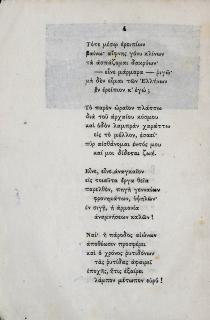 4
Τότε μέσῳ ἐρειπίων
βαίνω· αἴφνης γόνυ κλίνων
τὰ ἀσπάζομαι δακρύων·
— εἶνε μάρμαρα — ῥιγῶ·
μὴ δὲν εἶμαι τῶν Ἑλλήνων
ἓν ἐρείπιον κ' ἐγώ;
Τὸ παρὸν ὡραῖον πλάττω
διὰ τοῦ ἀρχαίου κόσμου
καὶ ὁδὸν λαμπρὰν χαράττω
εἰς τὸ μέλλον,
πῦρ αἰσθάνομαι ἐντός μου
καὶ μοὶ δίδεται ζωή.
Εἶνε, εἶνε ἀναγκαῖον
εἰς τοιαῦτα ἔργα θεῖα
παρελθόν, πηγὴ γενναίων
φρονημάτων, ὑψηλῶν·
ἐν σιγῇ, ἡ ἁρμονία
ἀναμνήσεων καλῶν!
Ναί· ἡ πάροδος αἰώνων
ἀποθέωσιν προσφέρει
καὶ ὁ χρόνος ῥυτιδόνων
τὰς ῥυτίδας ἀφαιρεῖ
ἐποχῆς, ἥτις ἐξαίρει
λάμπον μέτωπον εὐρύ!